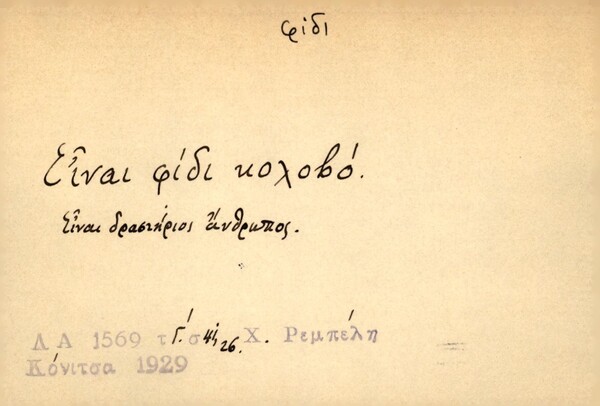 φίδι
Εἶναι φίδι κολοβό.
Εἶναι δραστήριος ἄνθρωπος.
Λ Α 1569 τ Γ. σ 26. Χ. Ρεμπέλη
Κόνιτσα 1929